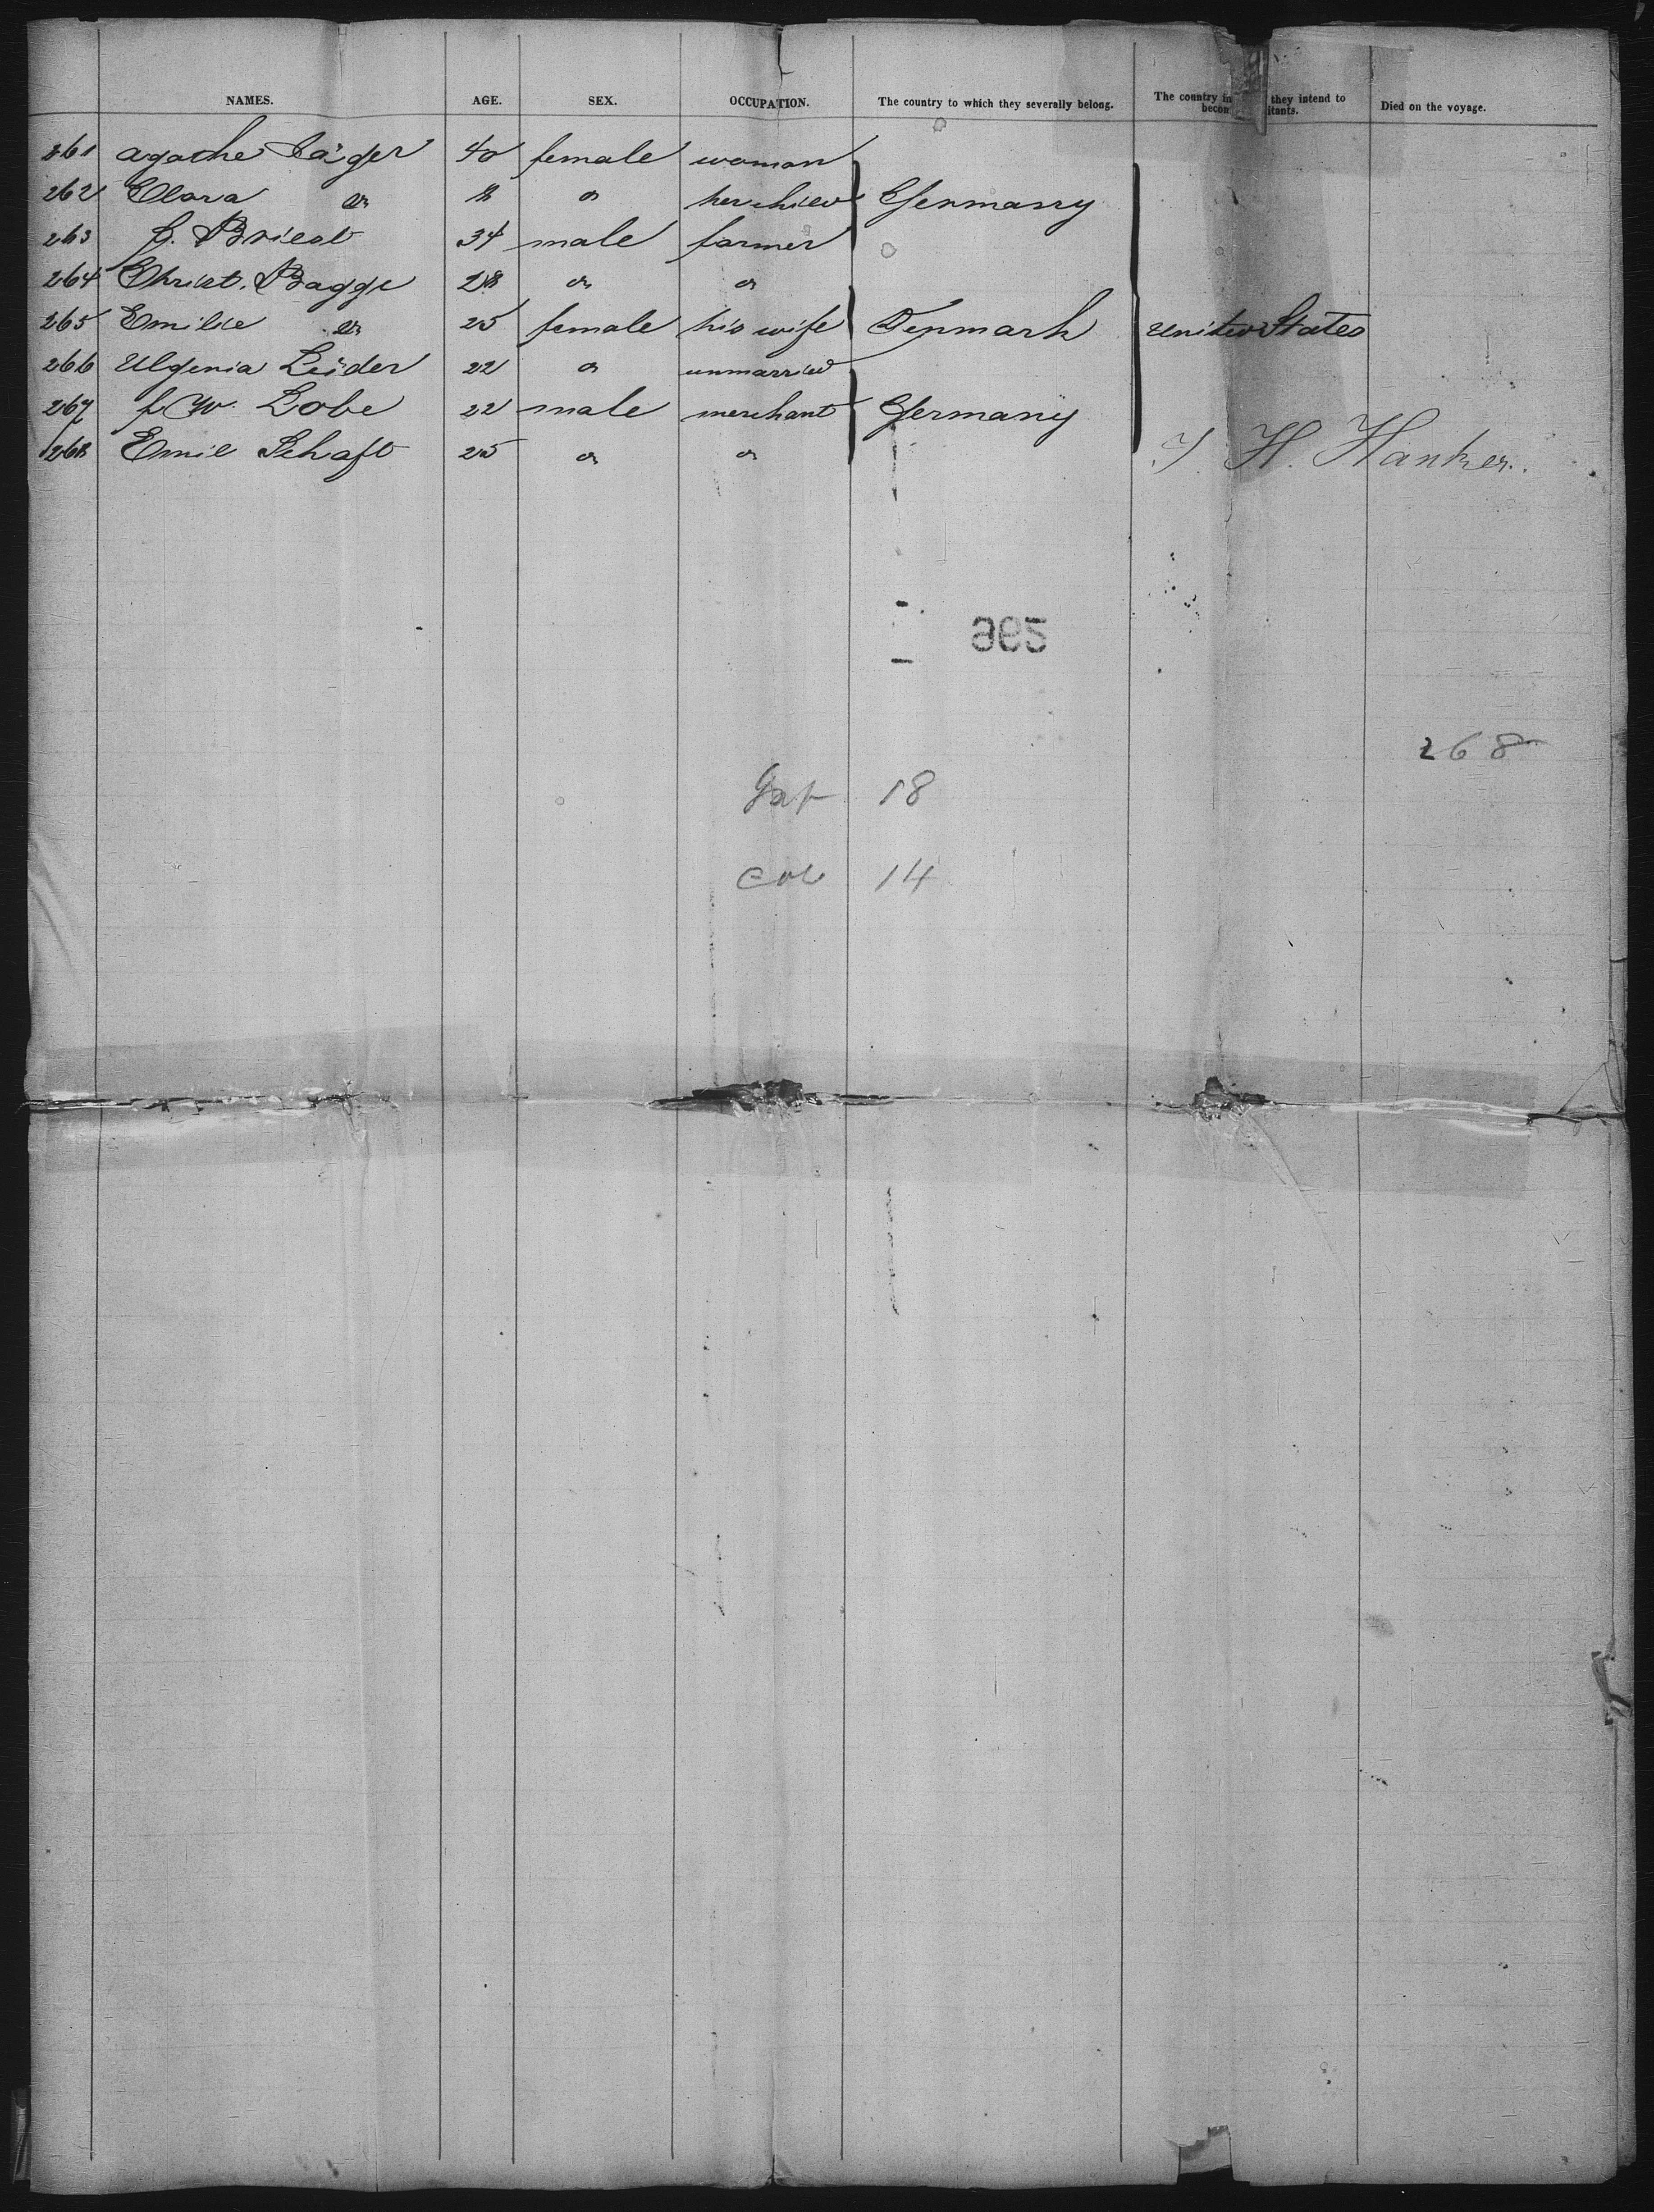 NAMES. AGE. SEX. OCCUPATION. The country to which they severally belong. The country in they intend to Died on the voyage.
becom itants.
261 Agathe Jäger 40 female woman
262 Clara do 8 do her child Germany
263 f. Briest 34 male farmer
264 Christ. Bagge 28 do do
265 Emilie do 25 female his wife Denmark United States
266 Ulgenia Lüder 22 do unmarried
267 f. W. Lobe 22 male merchant Germany
268 Emil Schaft 25 do do
H. Hanker.
268
18
14